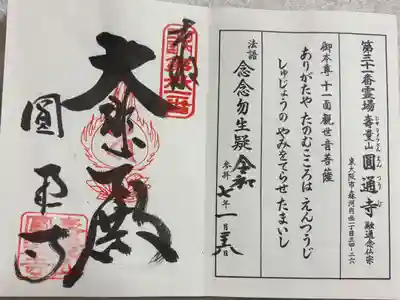 第三十一番霊場 壽量山 圓通寺 融通念仏宗
東大阪市森河内西一丁目三四-二六
御本尊 十一面観世音菩薩
ありがたや たのむこころは えんつうじ
しゅじょうの やみをてらせ たまいし
法語 念念勿生疑
参拝 令和七年一月 日
奉拝
大悲殿
圓通寺